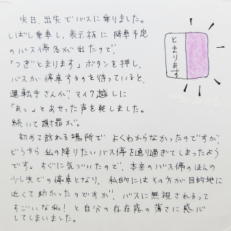 先日、出先でバスに乗りました。
しばし乗車し、表示板に降車予定
のバス停名が出たので、
「つぎとまります」ボタンを押し、
バスが停車するのを待っていると、
運転手さんがマイク越しに
「あっ」とあせった声を発しました。
続いて謝罪が。
初めて訪れる場所でよくわからなかったのですが、
どうやら私の降りたいバス停を通り過ぎてしまったよう
です。すぐに気づいたので、本来のバス停のほんの
少し先での停車となり、私的にはその方が目的地に
近くて助かったのですが、バスに無視されるって
すごいな私！と自分の存在感の薄さに感心
してしまいました。
とまります